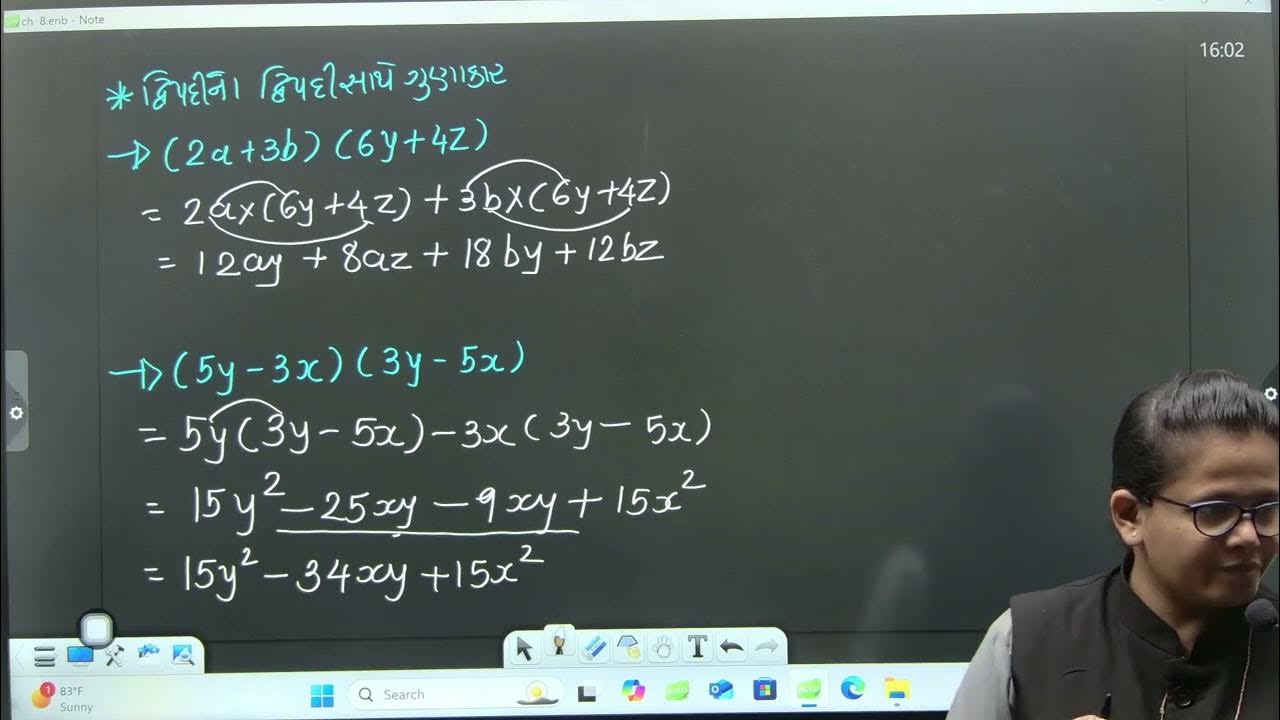 ch 8.enb - Note
16:02
* દ્વિપદીનો દ્વિપદી સાથે ગુણાકાર
→ (2a+3b) (6y+4z)
= 2a×(6y+4z) + 3b×(6y+4z)
= 12ay + 8az + 18by + 12bz
→ (5y-3x) (3y-5x)
= 5y(3y-5x) - 3x(3y-5x)
= 15y² - 25xy - 9xy + 15x²
= 15y² - 34xy + 15x²
T
1 83°F
Sunny
Search